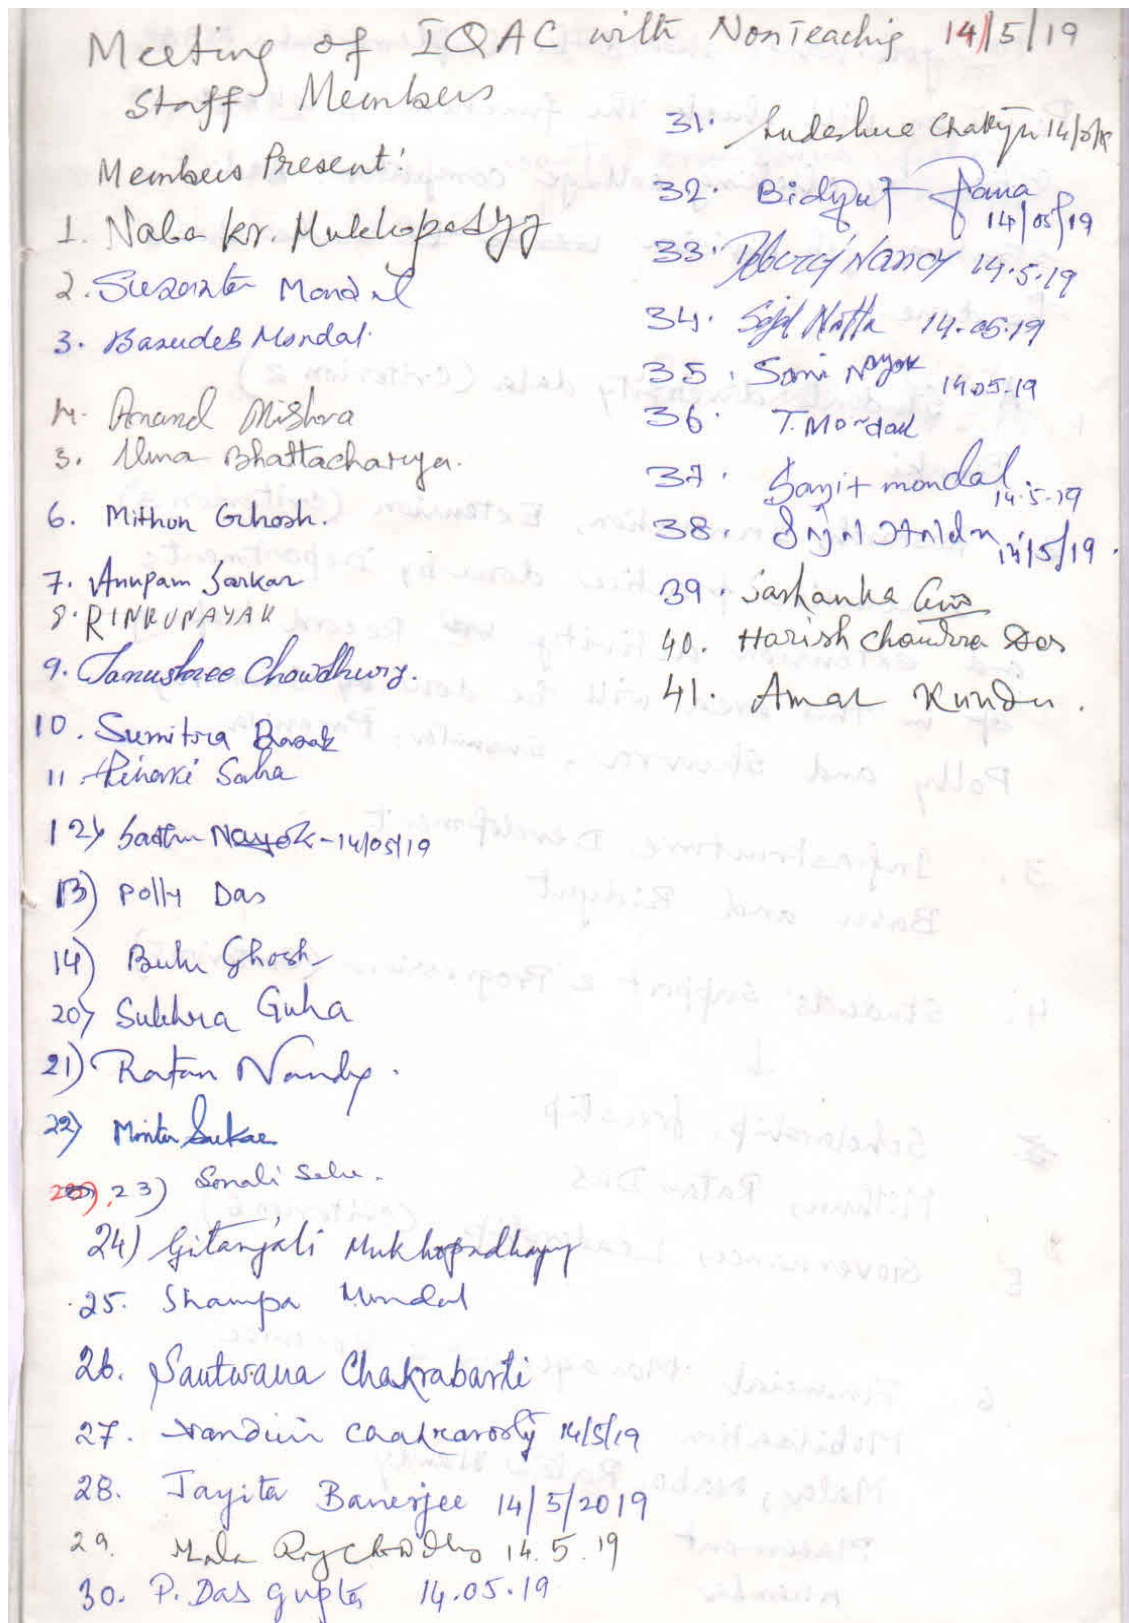 Meeting of IQAC with NonTeaching 14/5/19
Staff Members
Members Present:
1. Naba Kr. Mukhopadyy
2. Susanta Mondal
3. Basudeb Mondal.
4. Anand Mishra
5. Uma Bhattacharya.
6. Mithun Ghosh.
7. Anupam Sarkar
8. RINKU NAYAK
9. Tanushree Chowdhury.
10. Sumitra Basak
11. Pinaki Saha
12) Sadhu Nayak - 14/05/19
13) Polly Das
14) Bulu Ghosh
20) Sukhra Guha
21) Ratan Nandy.
22) Mintu Sarkar
23) Sonali Saha.
24) Gitanjali Mukhopadhyay
25. Shampa Mondal
26. Santwana Chakrabarti
27. Nandini Chakravorty 14/5/19
28. Jayita Banerjee 14/5/2019
29. Mala Roychowdhury 14.5.19
30. P. Das Gupta 14.05.19
31.
32. Bidyut Pana 14/05/19
33. Debaraj Nandy 14.5.19
34. 14.05.19
35. Somi Nayak 14.05.19
36. T. Mondal
37. Sanjit mondal 14.5.19
38. 14/5/19.
39. Sashanka
40. Harish Chandra Das
41. Amar Kundu.